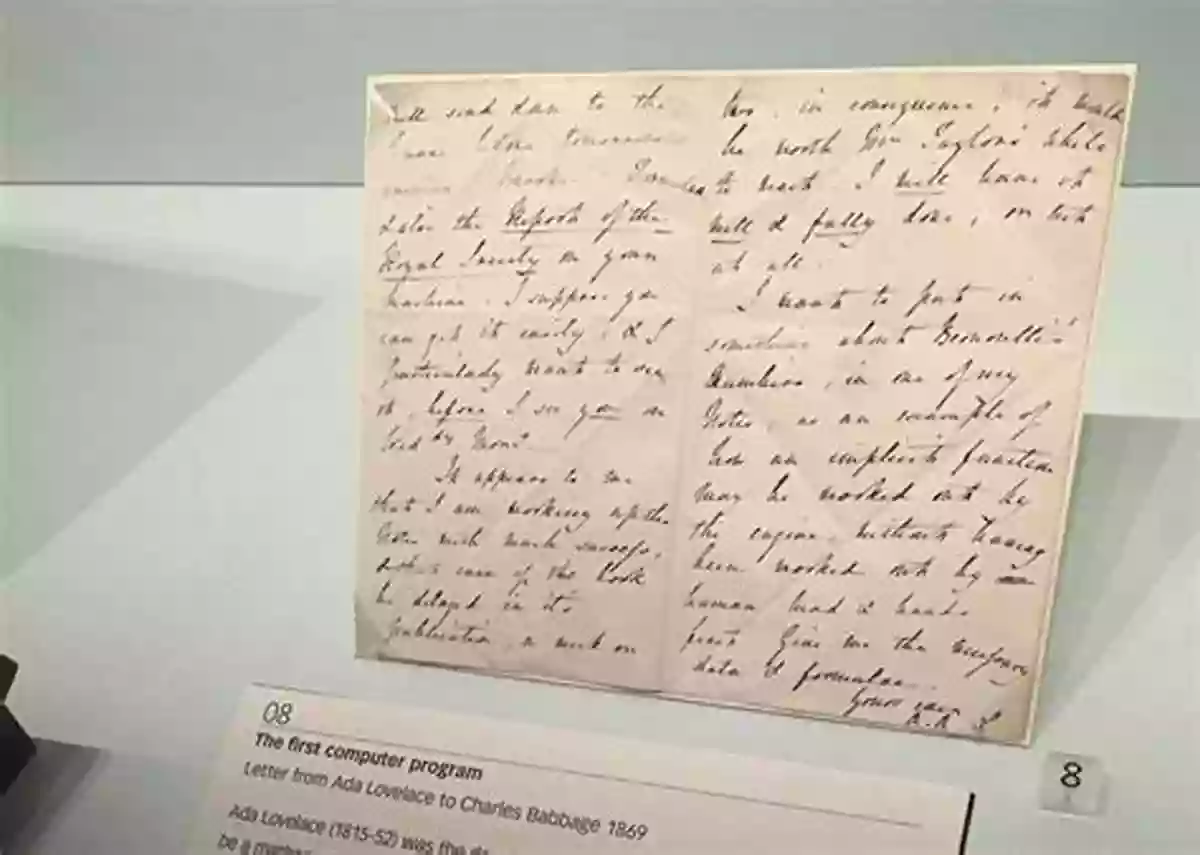 send down to the
tomorrow
evening
& also the Report of the
Royal Society on your
machine. I suppose you
can get it easily; & I
particularly want to see
it, before I see you on
It appears to me
that I am working up the
Notes with much success;
& that even if the book
be delayed in it's
publication, a week or
two, in consequence, it would
be worth Mr Taylor's while
to wait. I will have it
well & fully done; or not
at all.
I want to put in
something about Bernoulli's
Numbers, in one of my
Notes, as an example of
how an implicit function
may be worked out by
the engine, without having
been worked out by
human head & hands
first. Give me the necessary
data & formulae.
Yours ever
08
The first computer program
Letter from Ada Lovelace to Charles Babbage 1869
Ada Lovelace (1815-52) was the
be a
8